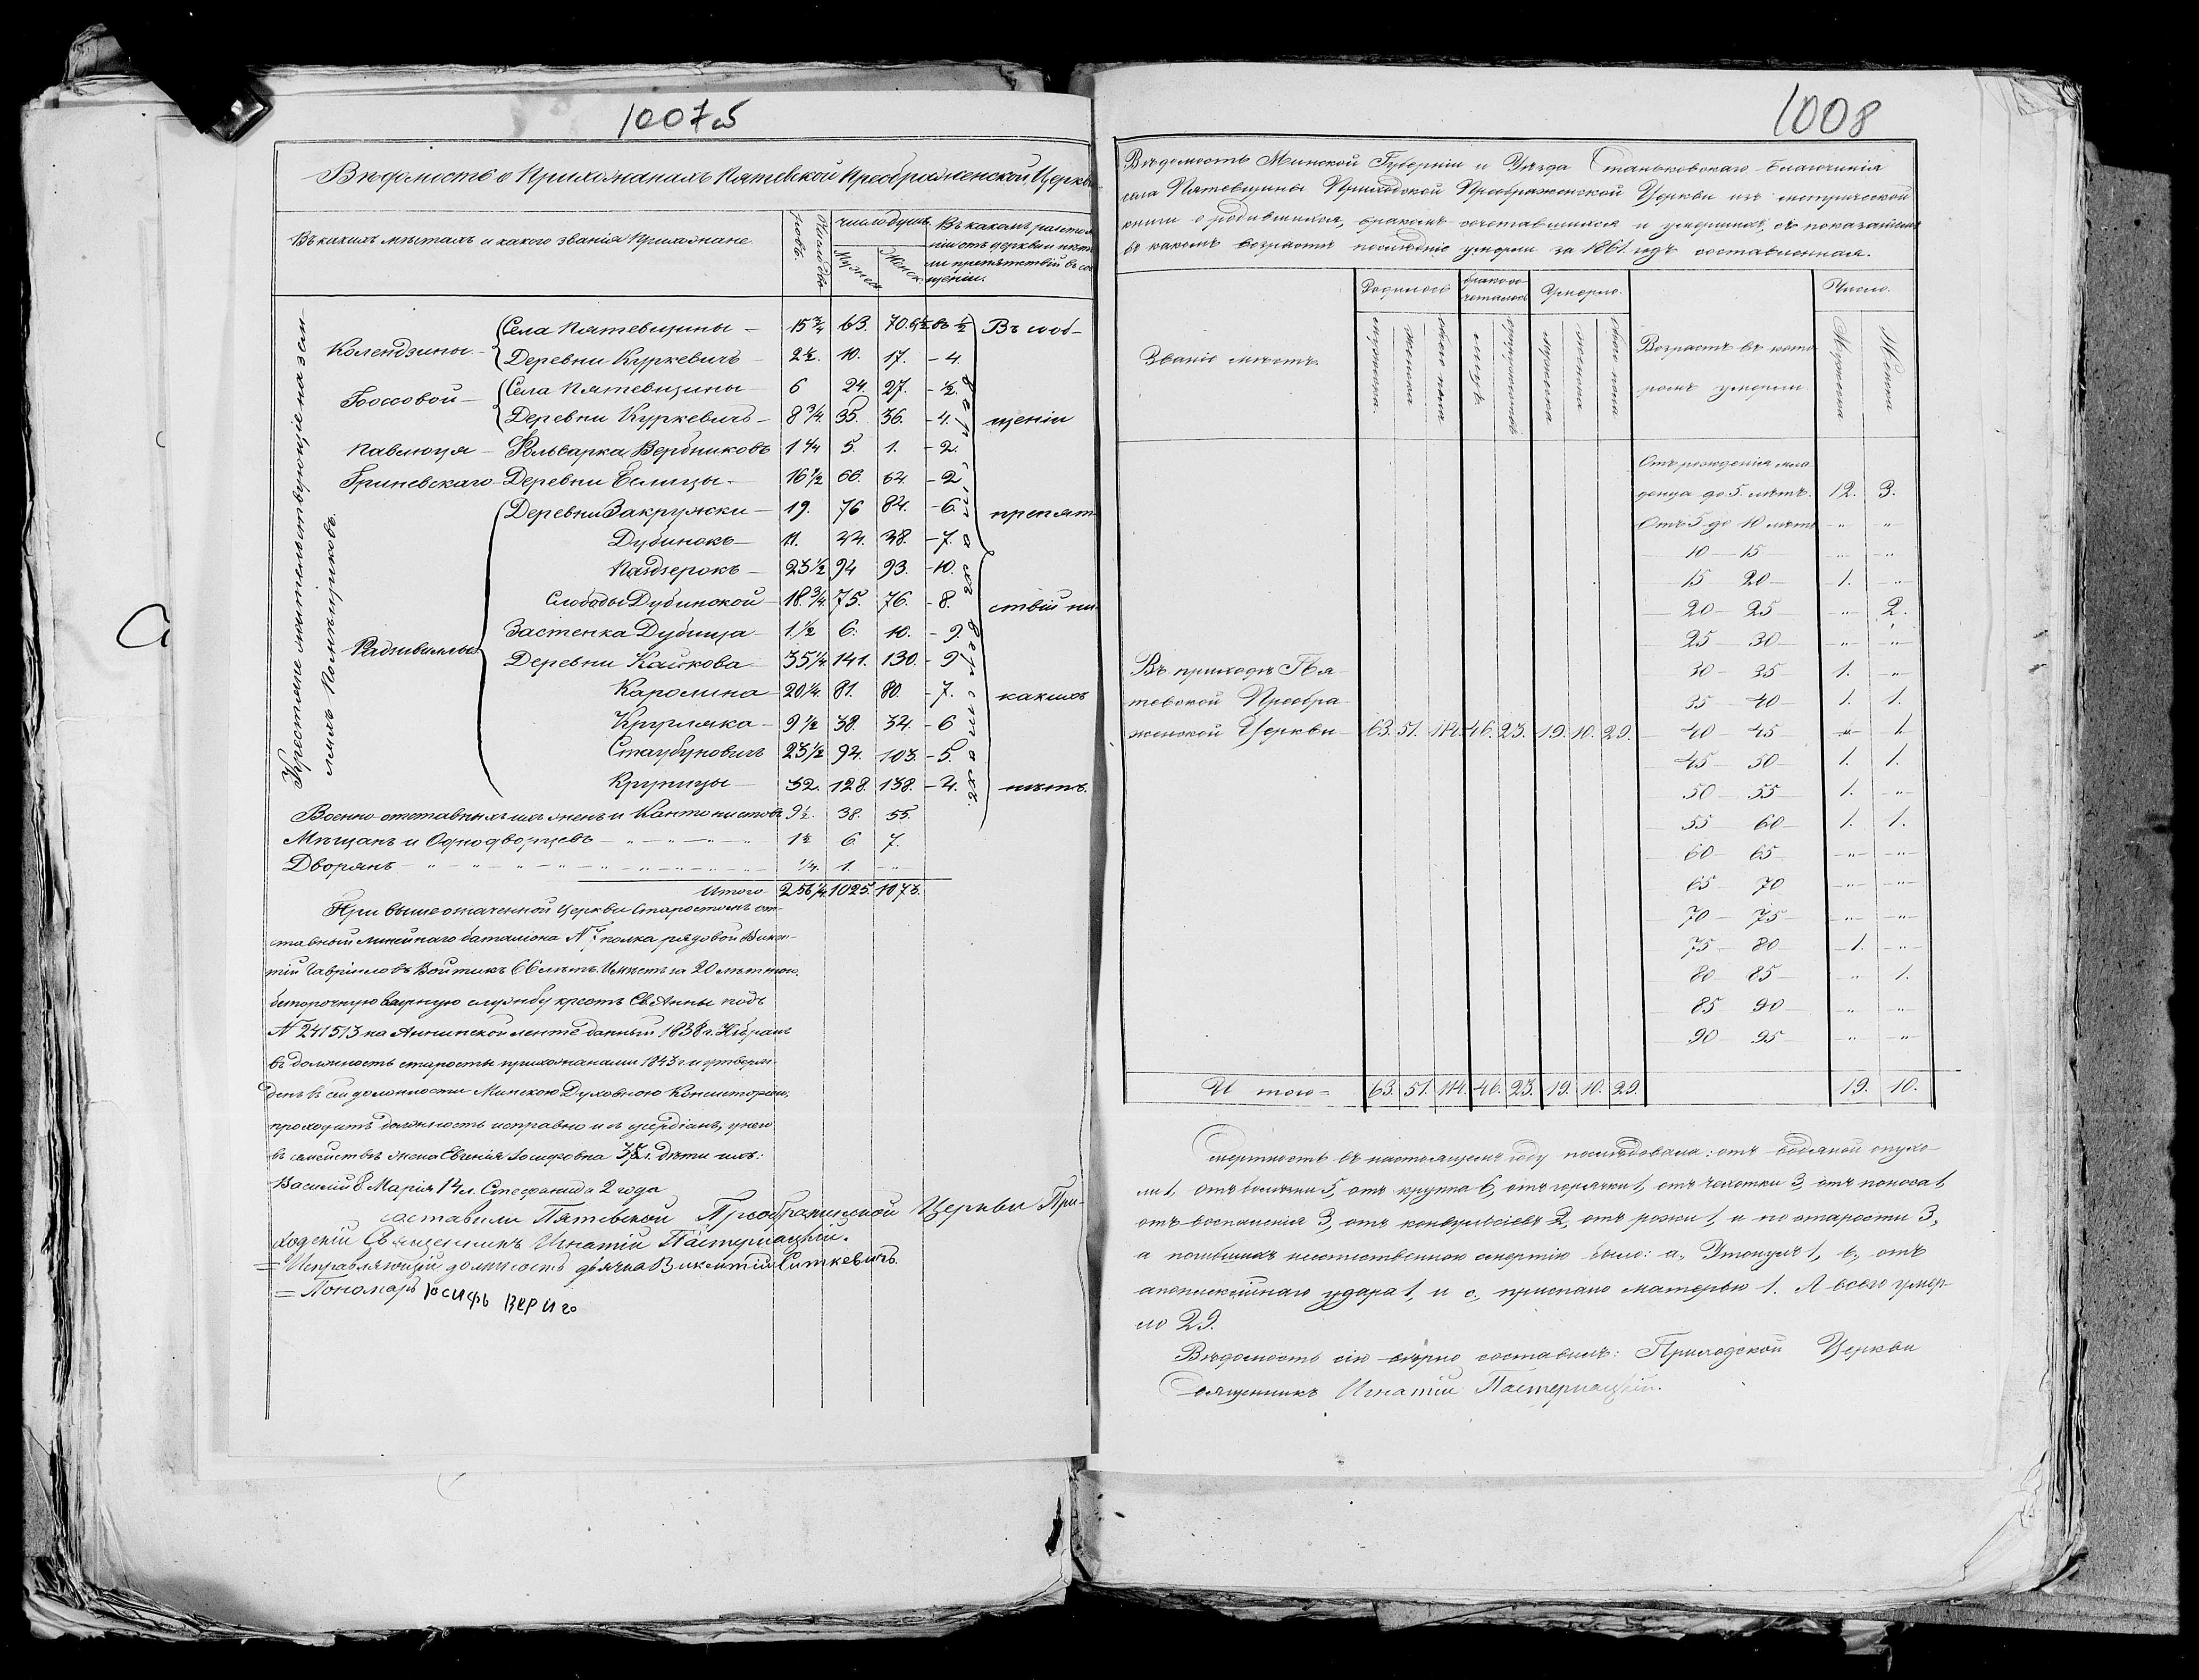 1007об
Вѣдомость о Прихожанахъ Пятевской Преображенской Церкви
Въ какихъ мѣстахъ и какого званія Прихожане
Число дворовъ
число душъ
Мужеск
Женск
Въ какомъ разстоя
ніи отъ церкви и нѣтъ
ли препятствій въ сооб
щеніи.
Крестьяне жительствующіе на зем-
ляхъ Помѣщиковъ.
Колендзины — Села Пятевщины — 15 3/4 63. 70. въ 1/2 Въ сооб-
Деревни Куркевичъ — 2 1/2. 10. 17. — 4.
Села Пятевщины 6 24. 27. — 1/2.
Деревни Куркевичъ — 8 3/4. 35. 36. — 4. щеніи
Павлюця — Фольварка Вербниковъ 1 1/4 5. 1. — 2.
Гриневскаго — Деревни Еслицы. — 16 1/2 66. 64 — 2
Деревни Закружки — 19. 76 84. — 6. препят
Дубинокъ — 11. 44. 38. — 7.
Паздзерокъ — 23 1/2 94 93. — 10.
Слободы Дубинской — 18 3/4. 75. 76. — 8. ствій ни
Застенка Дубища — 1 1/2 6. 10. — 9.
Радзивиллы Деревни Кайкова — 35 1/4 141. 130. — 9
Каролина — 20 1/4. 81. 80. — 7. какихъ
Кругляка — 9 1/2 38. 34 — 6
Стаубуновичъ 23 1/2 94. 103. — 5.
Крупицы — 32. 128. 138. — 4. нѣтъ.
верстахъ.
Военно-отставныхъ ихъ женъ и Кантонистовъ 9 1/2. 38. 55.
Мѣщанъ и Однодворцевъ — 1 1/2 6 7.
Дворянъ — 1/4. 1. —
Итого 256 1/4 1025. 1073.
При вышеозначенной Церкви Старостою от-
ставный линейнаго баталіона № полка рядовой Викен-
тій Гавріиловъ Войтикъ 66 лѣтъ. Имѣетъ за 20 лѣтнюю
безпорочную службу крестъ Св. Анны подъ
№ 241513 на Аннинской лентѣ данный 1838 г. Избранъ
въ должность старосты прихожанами 1843 г. и утверж-
денъ въ сей должности Минскою Духовною Консисторіею,
проходитъ должность исправно и съ усердіемъ, у него
въ семействѣ жена Евгенія Іосифовна 35 л. дѣти ихъ:
Василій 8 Марія 14 л. Стефанида 2 года
составили Пятевской Преображенской Церкви При-
ходскій Священникъ Игнатій Пастернацкій.
= Исправляющій должность дьячка Викентій Ситкевичъ.
= Пономарь Юсифъ Вериго
1008
Вѣдомость Минской Губерніи и Уѣзда Станьковскаго Благочинія
села Пятевщины Приходской Преображенской Церкви изъ метрической
книги о родившихся, бракомъ сочетавшихся и умершихъ, съ показаніемъ
въ какомъ возрастѣ послѣдніе умерли за 1861 годъ составленная.
Званіе мѣстъ.
Родилось
бракосо-
четалось
Умерло.
Возрастъ въ кото
ромъ умерли
Число.
мужеска
женска
обоего пола
лицъ
супружествъ
мужеска
женска
обоего пола
Мужеска
Женска
Отъ рожденія мла
денца до 5. лѣтъ. 12. 3.
Отъ 5 до 10 лѣтъ „ „
10 — 15 — „ „
15 20 — 1. „
20 — 25 — „ 2.
25 — 30 — „ „
Въ приходѣ Пя-
30 — 35 1. „
тевской Преобра-
35 — 40 — 1. 1.
женской Церкви — 63. 51. 114. 46. 23. 19. 10. 29. 40 — 45 „ 1.
45 — 50 — 1. 1.
50 — 55 — 1. „
55 60 — 1. 1.
60 — 65 „ „
65 — 70 „ „
70 — 75 — „ „
75 — 80 — 1. „
80 — 85 — „ 1.
85 90 — „ „
90 — 95 — „ „
Итого — 63. 51. 114. 46. 23. 19. 10. 29. 19. 10.
Смертность въ настоящемъ году послѣдовала: отъ водяной опухо-
ли 1, отъ болѣзни 5, отъ круппа 6, отъ горячки 1, отъ чахотки 3, отъ поноса 1,
отъ воспаленія 3, отъ конвульсіевъ 2, отъ рожи 1, и по старости 3,
а погибшихъ неестественною смертію было: а., Утонулъ 1, в., отъ
апоплексичнаго удара 1, и с., приспано матерью 1. А всего умер-
ло 29.
Вѣдомость сію вѣрно составилъ: Приходской Церкви
Священникъ Игнатій Пастернацкій.